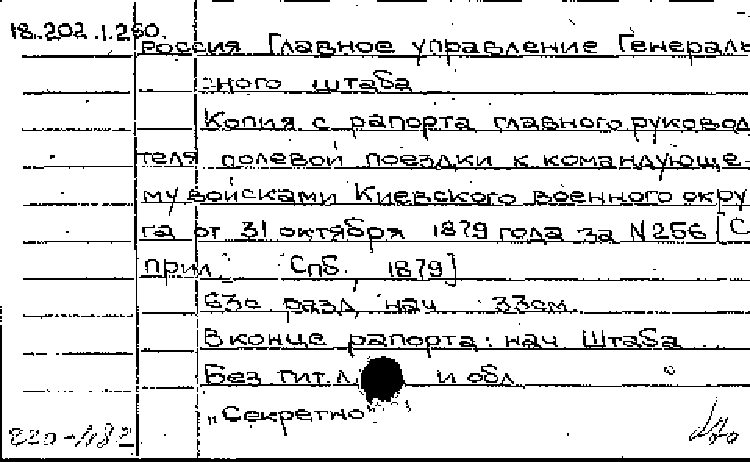 18.202.1.250.
Россия Главное управление Генераль
ного штаба
Копия с рапорта главного руковод
теля полевой поездки к командующе-
му войсками Киевского военного окру
га от 31 октября 1879 года за N256 [С
прил. Спб. 1879]
разд. нач 33см.
В конце рапорта: нач Штаба
Без тит. л. и обл
„Секретно"